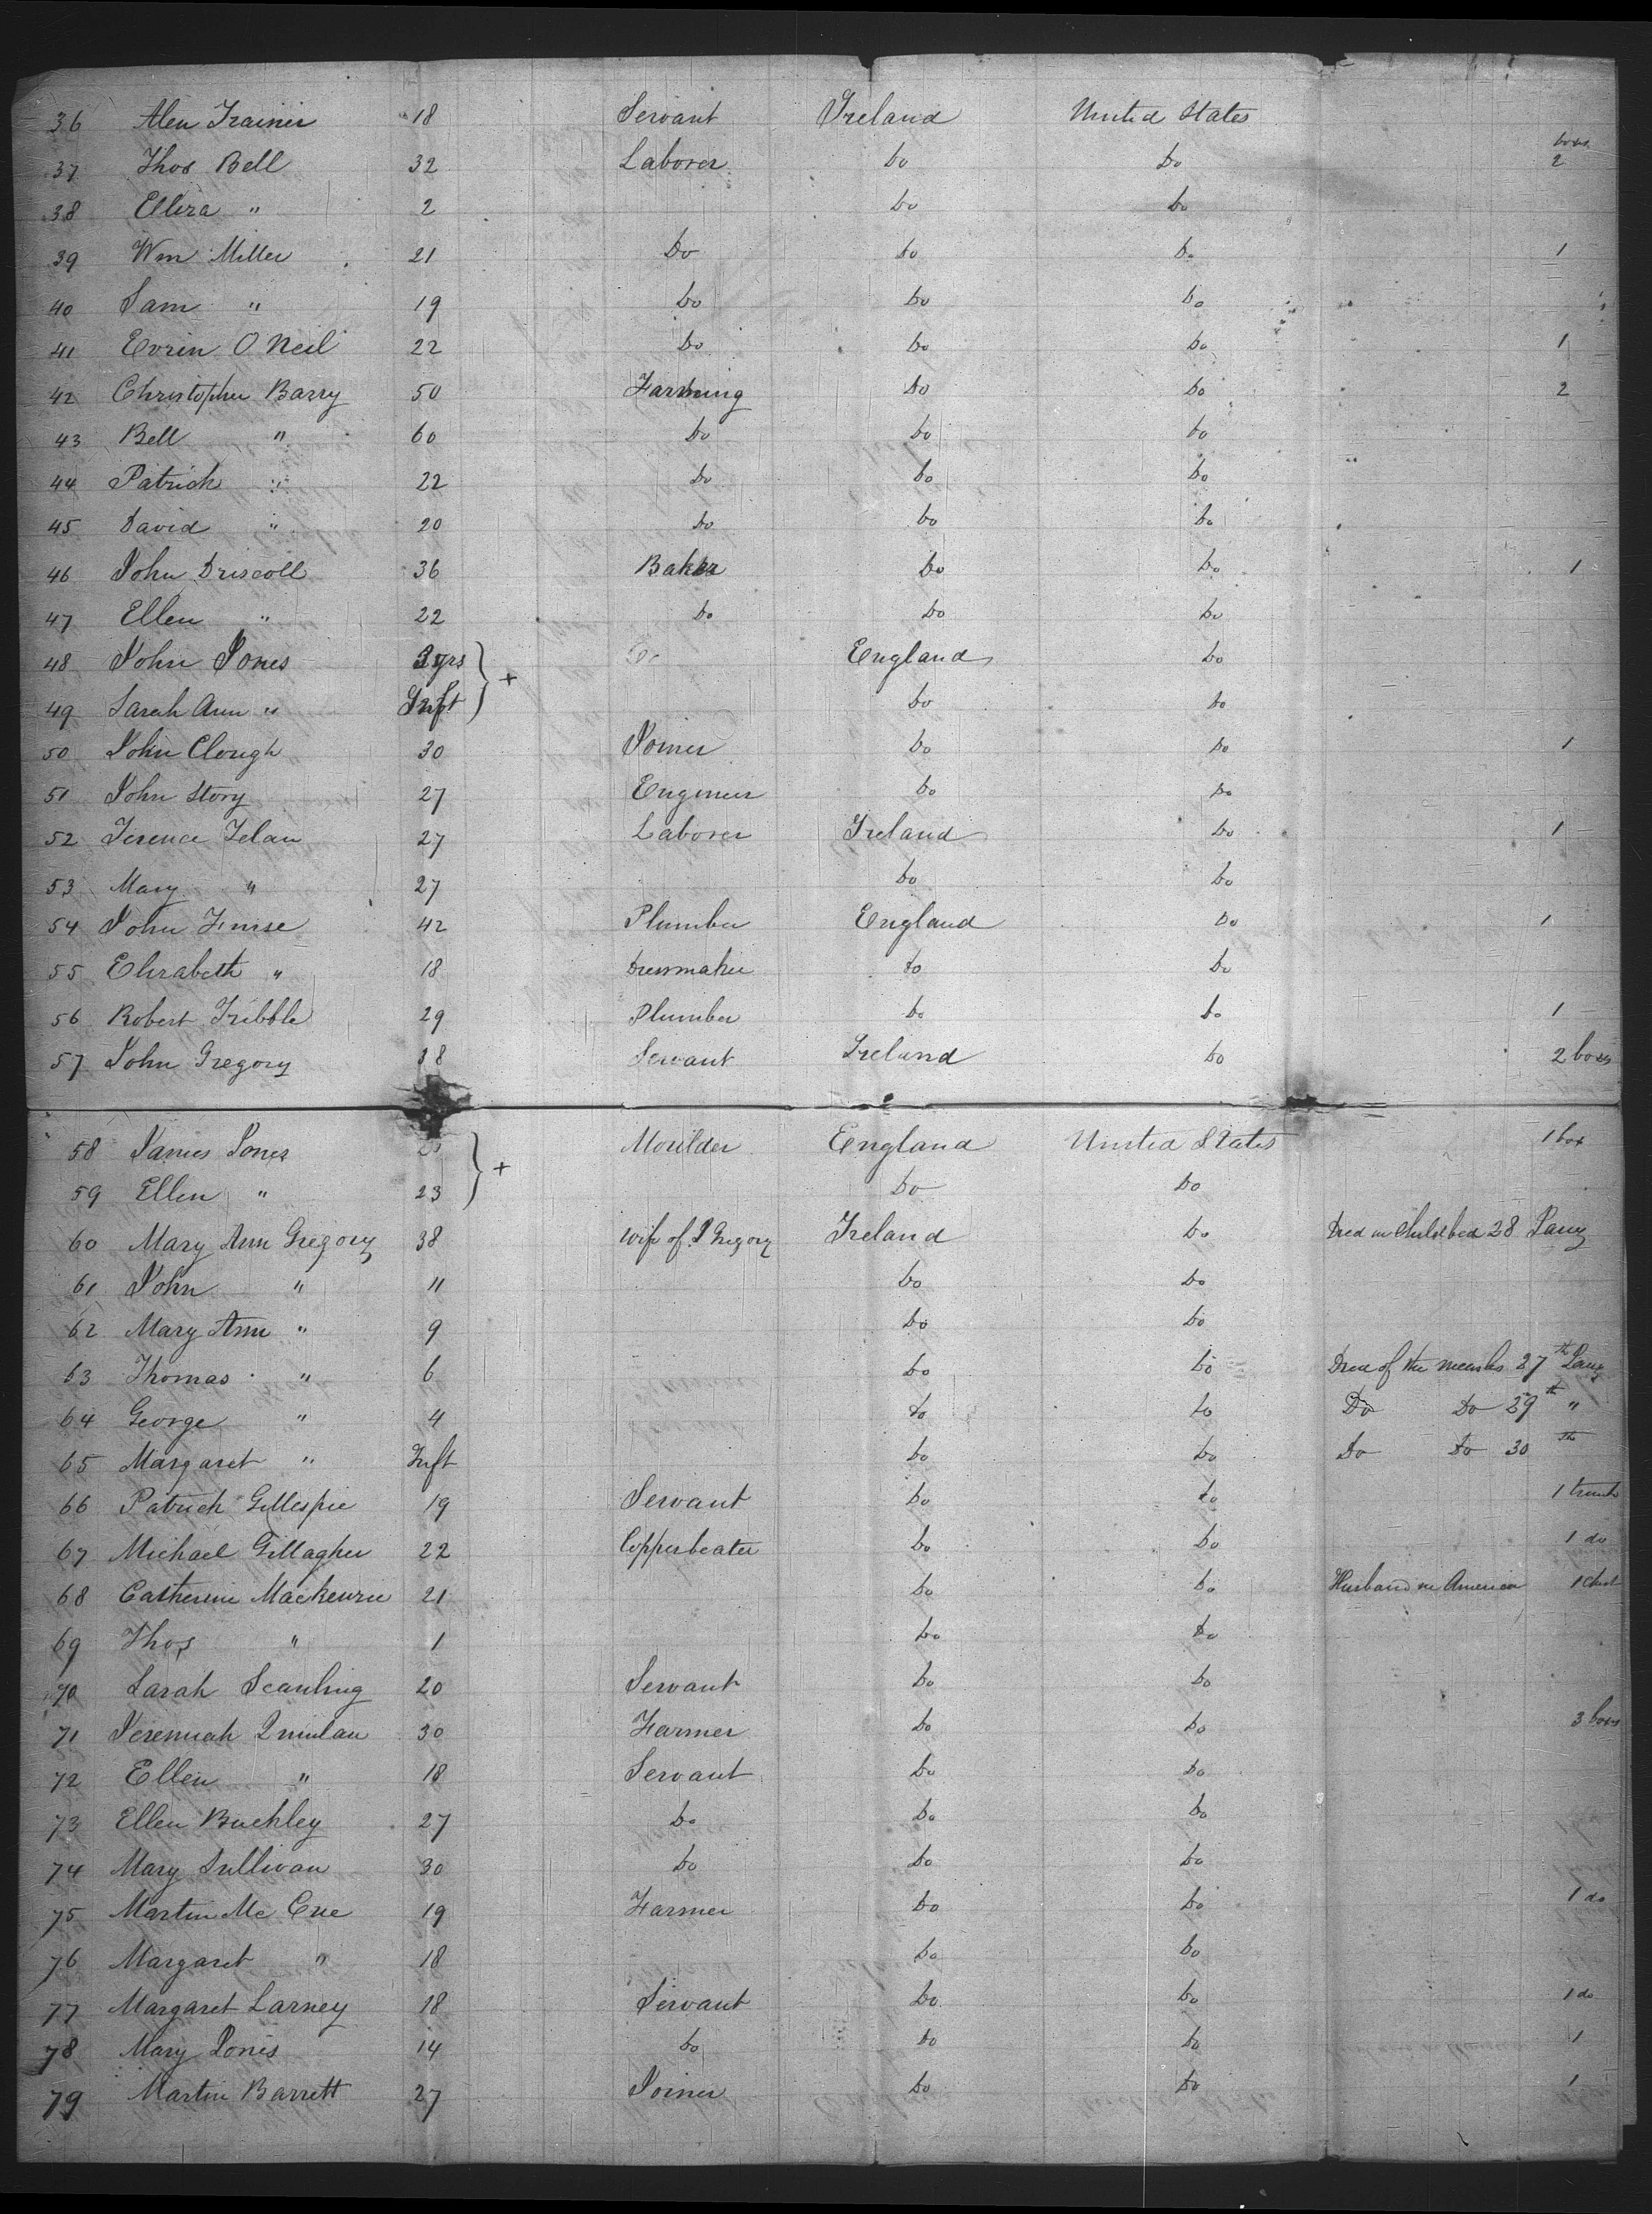 36 Alen Trainir 18 Servant Ireland United States
37 Thos Bell 32 Laborer Do Do boxes 2
38 Elliza " 2 Do Do
39 Wm Miller 21 Do Do Do 1
40 Sam " 19 Do Do Do
41 Evrin O Neil 22 Do Do Do 1
42 Christopher Barry 50 Farming Do Do 2
43 Bell " 60 Do Do Do
44 Patrick " 22 Do Do Do
45 David " 20 Do Do Do
46 John Driscoll 36 Baker Do Do 1
47 Ellen " 22 Do Do Do
48 John Jones 3 yrs } + England Do
49 Sarah Ann " Inft Do Do
50 John Clough 30 Joiner Do Do 1
51 John Story 27 Engineer Do Do
52 Terence Telan 27 Laborer Ireland Do 1
53 Mary " 27 Do Do
54 John 42 Plumber England Do 1
55 Elizabeth " 18 Dressmaker Do Do
56 Robert Tribble 29 Plumber Do Do 1
57 John Gregory 38 Servant Ireland Do 2 boxes
58 James Jones } + Moulder England United States 1 box
59 Ellen " 23 Do Do
60 Mary Ann Gregory 38 wife of J Gregory Ireland Do Died in Childbed 28 Jany
61 John " 11 Do Do
62 Mary Ann " 9 Do Do
63 Thomas " 6 Do Do Died of the measles 27th Jany
64 George " 4 Do Do Do Do 29th "
65 Margaret " Inft Do Do Do Do 30th
66 Patrick Gillespie 19 Servant Do Do 1 trunk
67 Michael Gillagher 22 Copperbeater Do Do 1 do
68 Catherine Mackenzie 21 Do Do Husband in America 1 Chest
69 Thos " 1 Do Do
70 Sarah Scanling 20 Servant Do Do
71 Jeremiah Quinlan 30 Farmer Do Do 3 boxes
72 Ellen " 18 Servant Do Do
73 Ellen Buckley 27 Do Do Do
74 Mary Sullivan 30 Do Do Do
75 Martin Mc Cue 19 Farmer Do Do 1 do
76 Margaret " 18 Do Do
77 Margaret Larney 18 Servant Do Do 1 do
78 Mary Jones 14 Do Do Do 1
79 Martin Barrett 27 Joiner Do Do 1